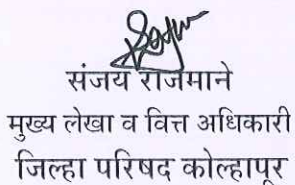 संजय राजमाने
मुख्य लेखा व वित्त अधिकारी
जिल्हा परिषद कोल्हापूर